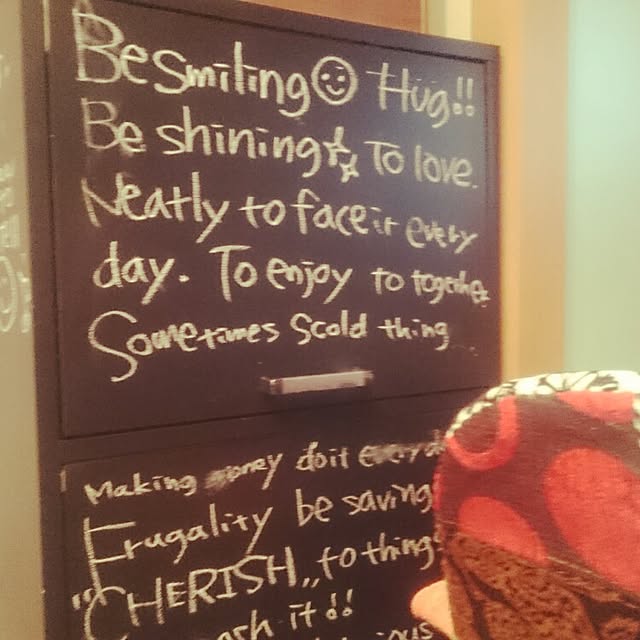 Be smiling☺ Hug!!
Be shining☆ To love.
Neatly to face it every
day. To enjoy to together
Sometimes Scold thing
Making money do it every
Frugality be saving
"CHERISH„ to thing
it!!